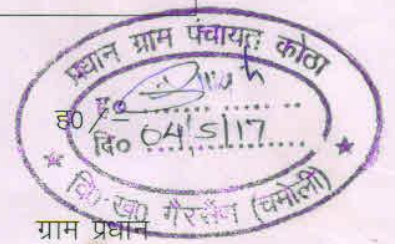 प्रधान ग्राम पंचायत कोठा
ह०
ह०
दि० 04/5/17
वि० ख० गैरसैंण (चमोली)
ग्राम प्रधान